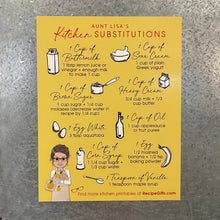 AUNT LISA'S
Kitchen SUBSTITUTIONS
1 Cup of
Buttermilk
1 tbsp lemon juice or
vinegar + enough milk
to make 1 cup
1 Cup of
Sour Cream
1 cup of plain
Greek yogurt
1 Cup of
Brown Sugar
1 cup sugar + 1/4 cup
molasses (decrease water in
recipe by 1/4 cup)
1 Cup of
Heavy Cream
3/4 cup milk +
1/3 cup butter
1 Egg White
3 tbsp aquafaba
1 Cup of Oil
1 cup applesauce
or fruit puree
1 Cup of
Corn Syrup
1 cup sugar +
1/4 cup water
1 Egg
1/2 mashed
banana + 1/2 tsp
baking powder
1 Teaspoon of Vanilla
1 teaspoon maple syrup
Find more kitchen printables at RecipeGifts.com